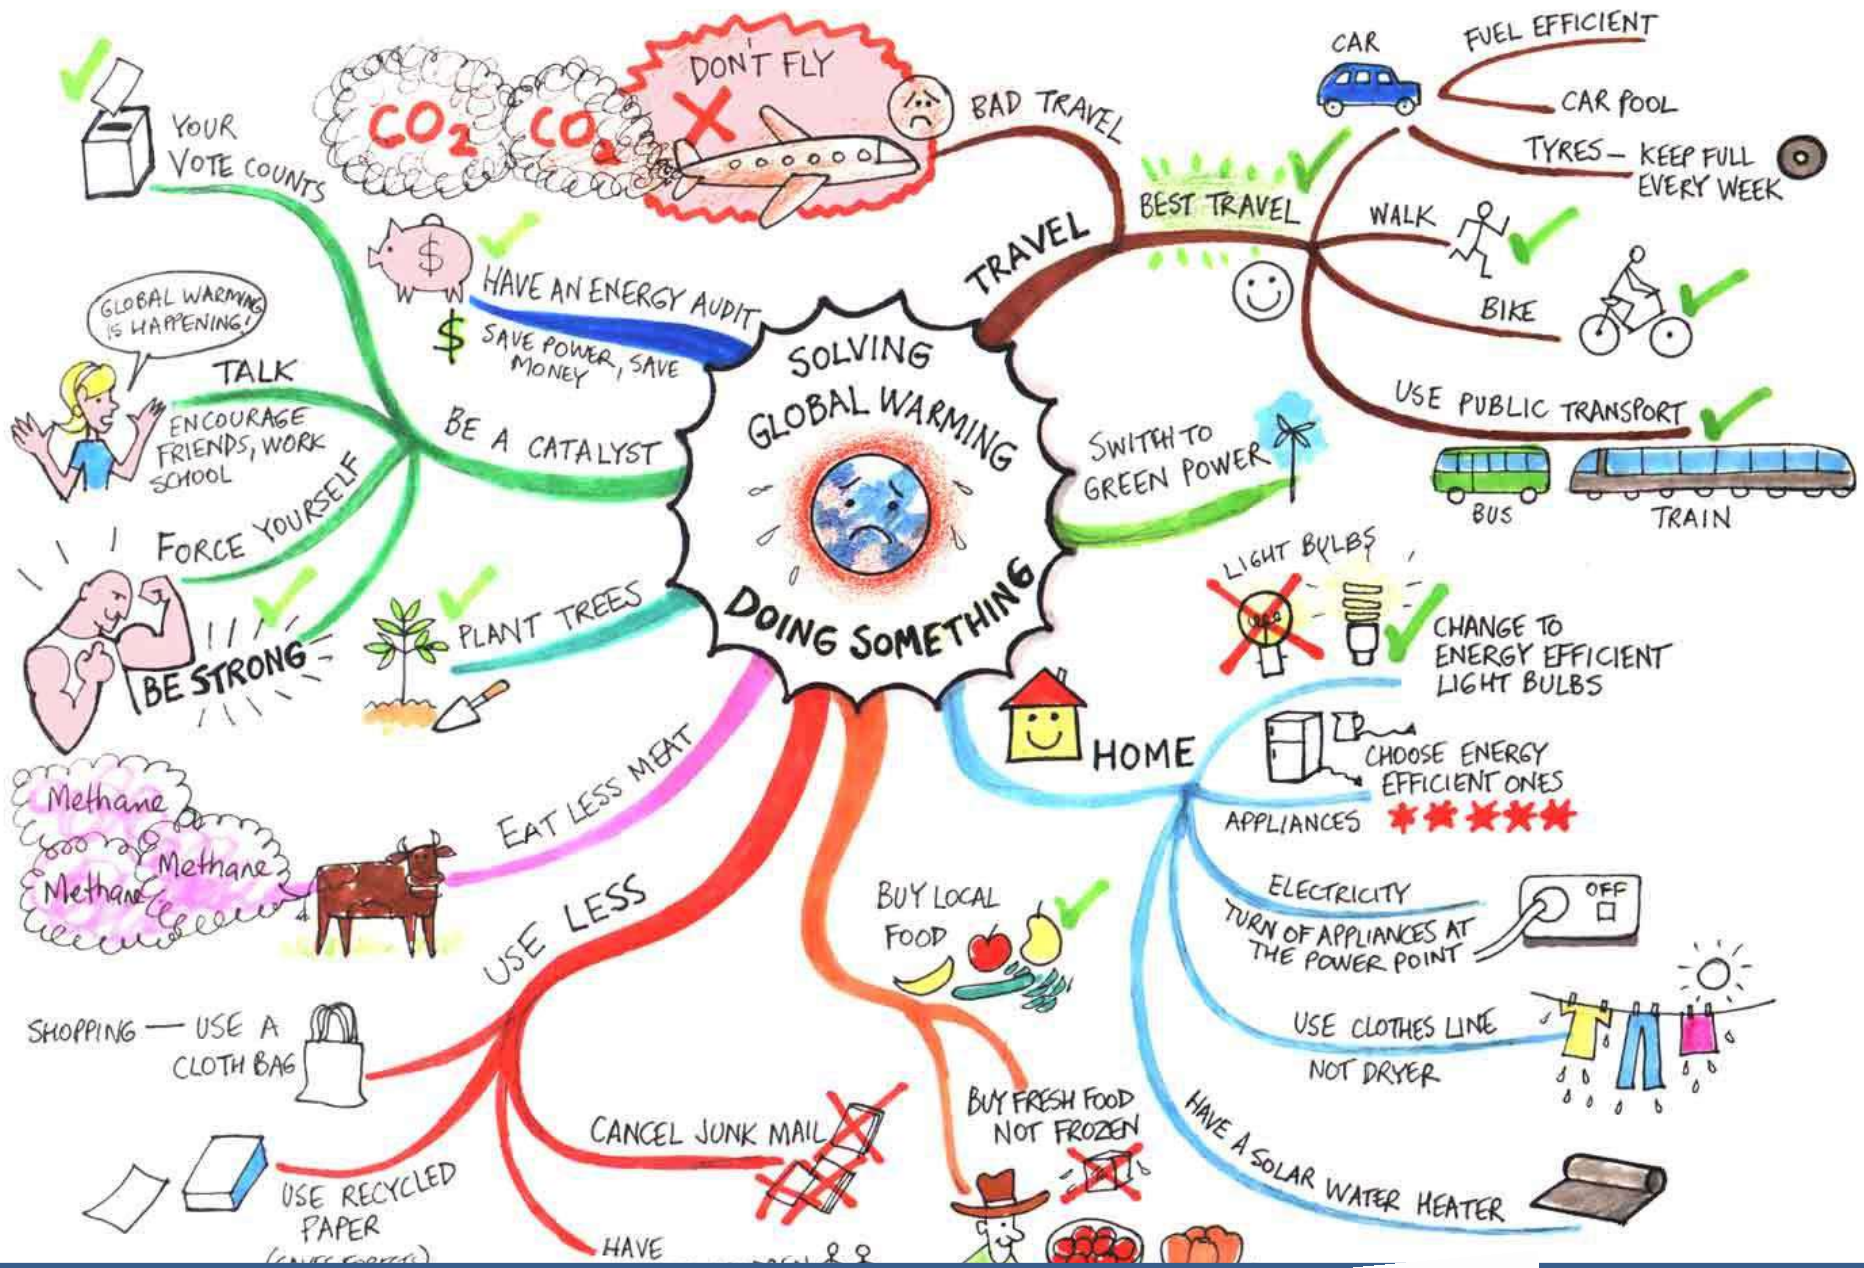 SOLVING
GLOBAL WARMING
DOING SOMETHING
TRAVEL
BAD TRAVEL
DON'T FLY
CO2
CO2
BEST TRAVEL
CAR
FUEL EFFICIENT
CAR POOL
TYRES — KEEP FULL
EVERY WEEK
WALK
BIKE
USE PUBLIC TRANSPORT
BUS
TRAIN
SWITCH TO
GREEN POWER
HOME
LIGHT BULBS
CHANGE TO
ENERGY EFFICIENT
LIGHT BULBS
CHOOSE ENERGY
EFFICIENT ONES
APPLIANCES
ELECTRICITY
TURN OF APPLIANCES AT
THE POWER POINT
OFF
USE CLOTHES LINE
NOT DRYER
HAVE A SOLAR WATER HEATER
BUY LOCAL
FOOD
BUY FRESH FOOD
NOT FROZEN
USE LESS
CANCEL JUNK MAIL
HAVE
SHOPPING — USE A
CLOTH BAG
USE RECYCLED
PAPER
EAT LESS MEAT
Methane
Methane
Methane
PLANT TREES
BE A CATALYST
YOUR
VOTE COUNTS
TALK
ENCOURAGE
FRIENDS, WORK
SCHOOL
GLOBAL WARMING
IS HAPPENING!
FORCE YOURSELF
BE STRONG
HAVE AN ENERGY AUDIT
SAVE POWER, SAVE
MONEY
$
$